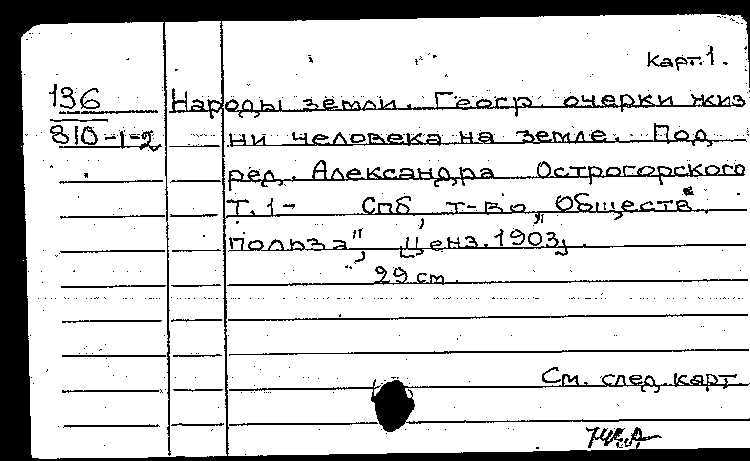 Карт. 1.
136 Народы земли. Геогр. очерки жиз
810-1-2 ни человека на земле. Под
ред. Александра Острогорского
Т. 1- Спб, т-во „Обществ.
польза", ценз. 1903.
29 см.
См. след. карт.